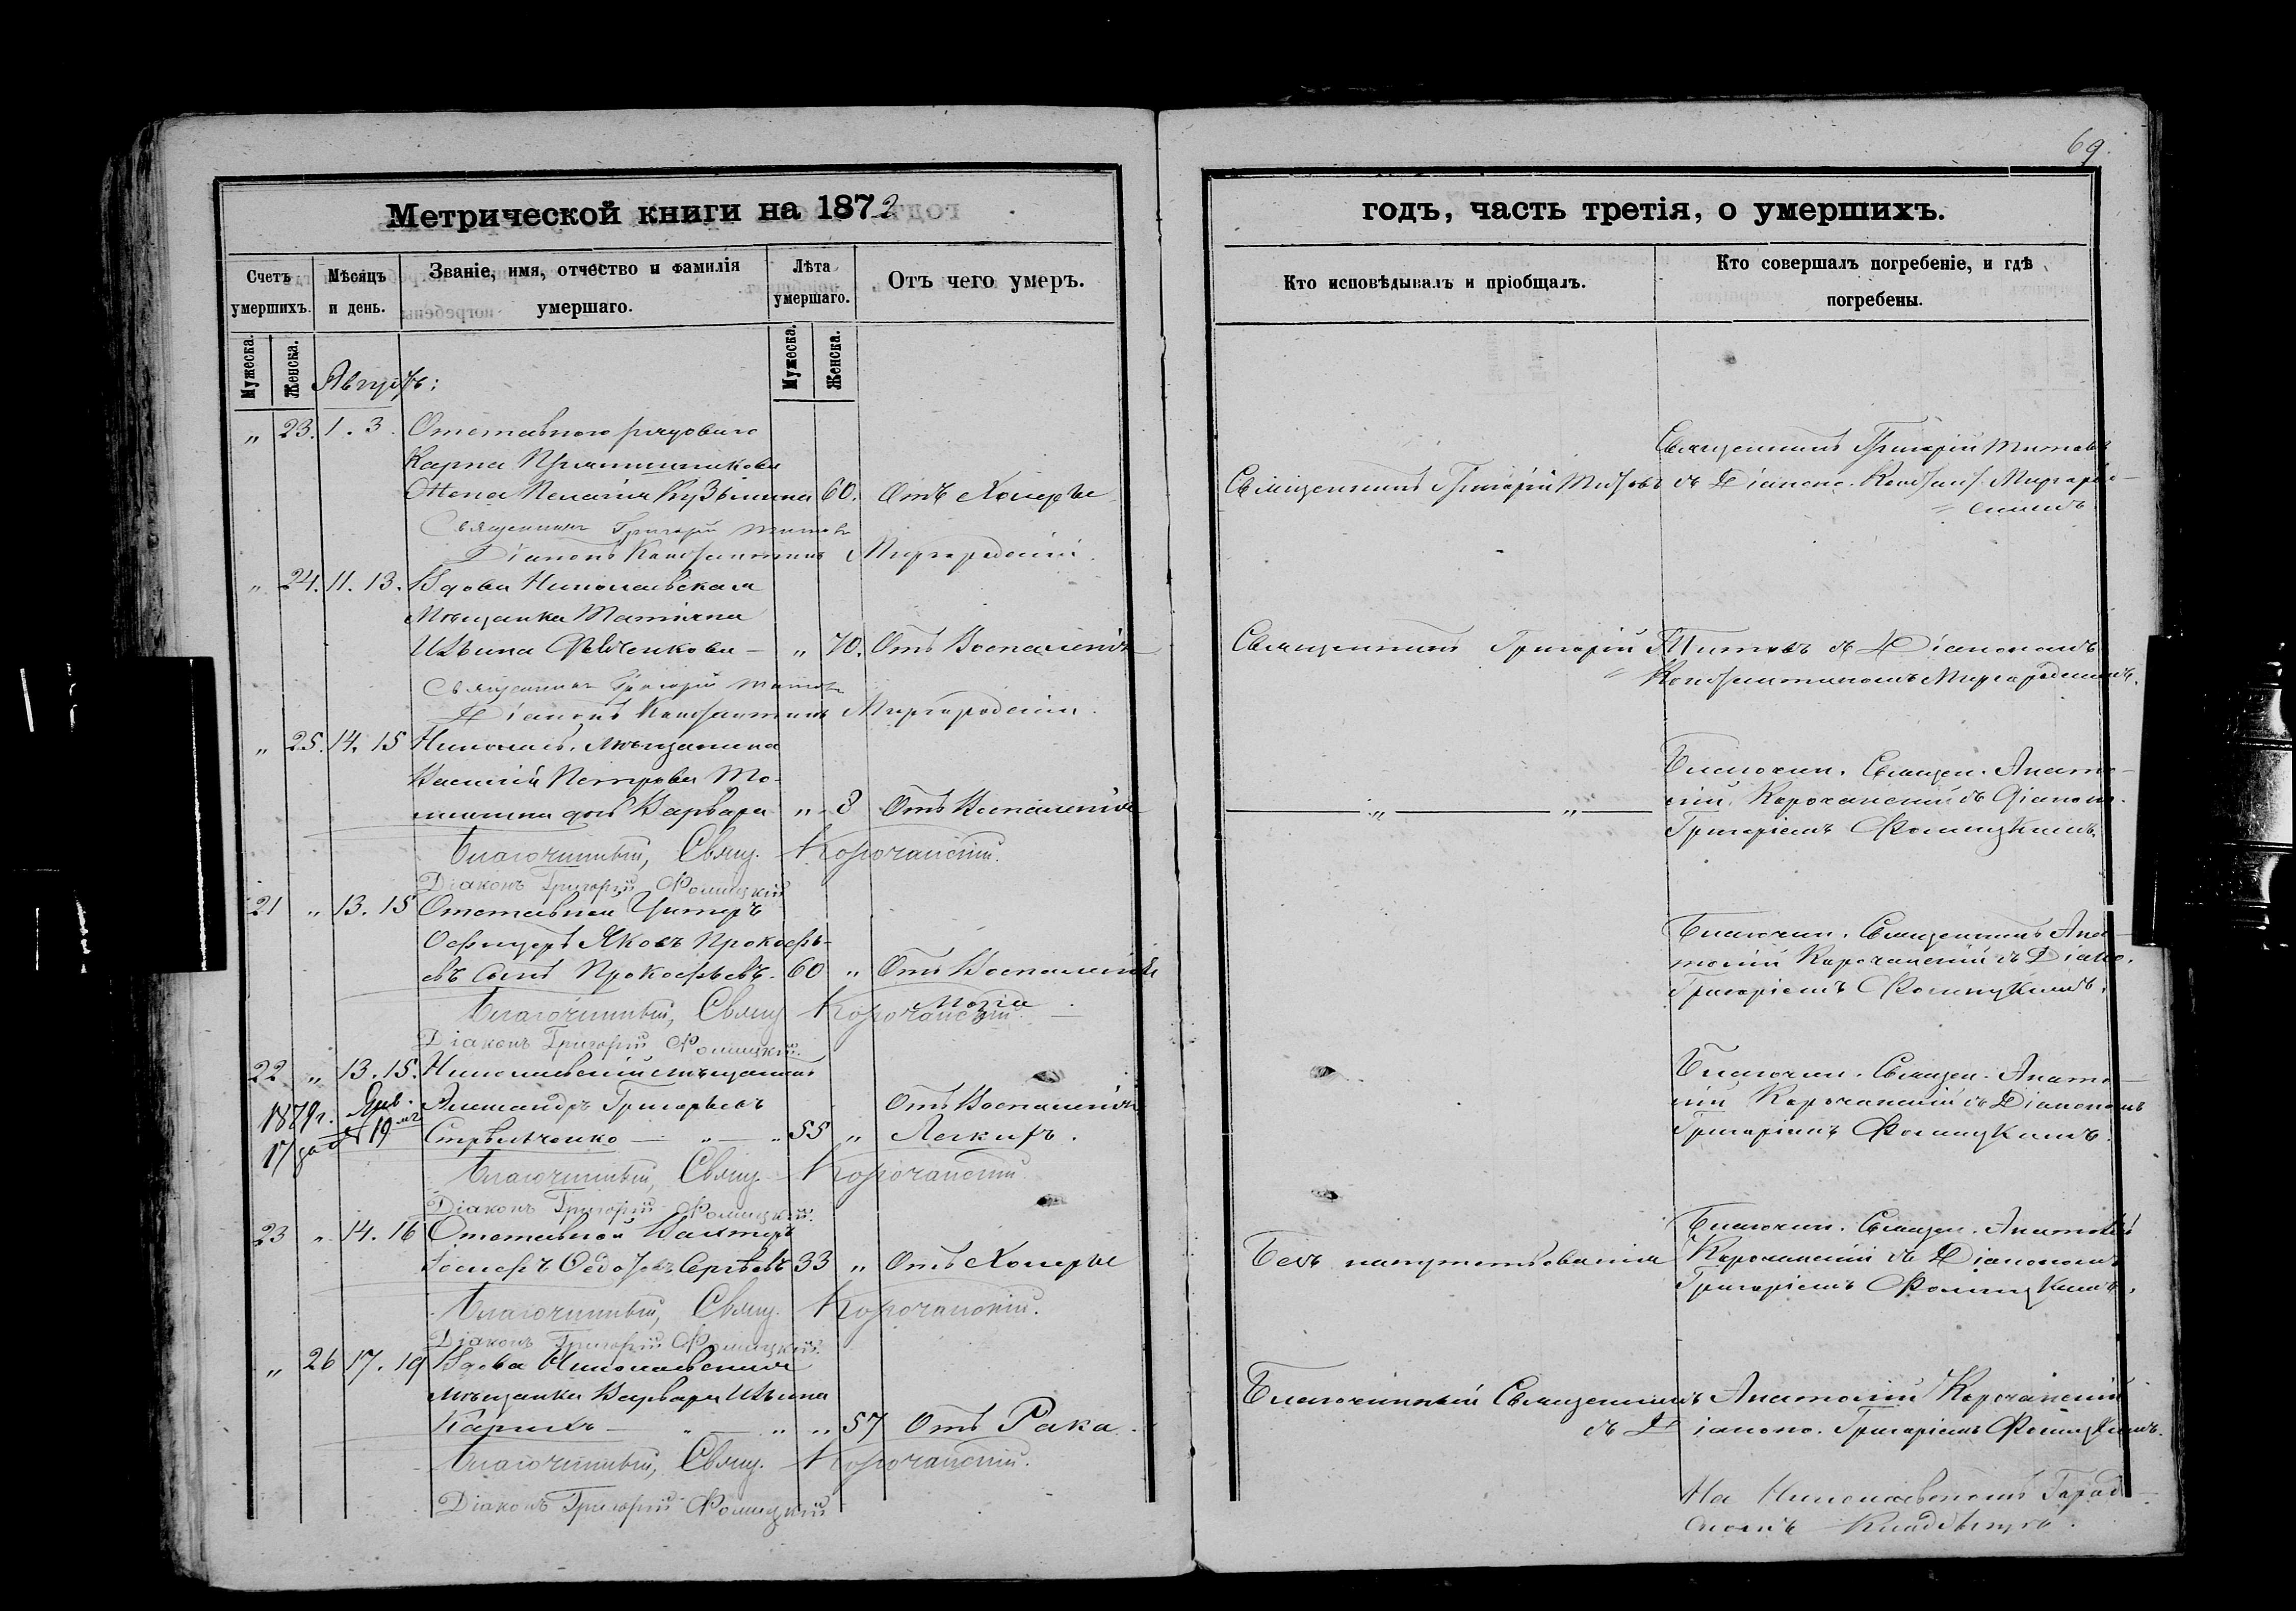 69.
Метрической книги на 1872
годъ, часть третія, о умершихъ.
Счетъ умершихъ.
Мѣсяцъ и день.
Званіе, имя, отчество и фамилія умершаго.
Лѣта умершаго.
Отъ чего умеръ.
Кто исповѣдывалъ и пріобщалъ.
Кто совершалъ погребеніе, и гдѣ погребены.
Мужеска.
Женска.
Мужеска.
Женска.
Августъ:
„ 23. 1. 3. Отставного рядового
Карпа
Жена Пелагія Кузьмина 60. Отъ Холеры
Священникъ Григорій Титовъ
Священникъ Григорій Титовъ съ Діакono. Конст. Миргород-
скимъ
Священникъ Григорій Титовъ
Діаконъ Константинъ Миргородскій.
„ 24. 11. 13. Вдова Николаевская
Мѣщанка Татіяна
Ильина – „ 70. Отъ Воспаленія
Священникъ Григорій Титовъ съ Діакономъ
Константиномъ Миргородскимъ.
Священникъ Григорій Титовъ
Діаконъ Константинъ Миргородскій.
„ 25. 14. 15 Николаев. мѣщанина
Василія Петрова То-
дочь Варвара „ 8 Отъ Воспаленія
— „ — „ —
Благочин. Священ. Анато-
лій Корочанскій съ Діакон.
Григоріемъ Фомицкимъ.
Благочинный, Свящ. Корочанскій.
Діаконъ Григорій Фомицкій
21 „ 13. 15 Отставной Унтеръ
Офицеръ Яковъ Прокофь-
евъ сынъ Прокофьевъ. 60 „ Отъ Воспаленія
Мозга
Благочин. Священникъ Ана-
толій Корочанскій съ Діако.
Григоріемъ Фомицкимъ.
Благочинный, Свящ. Корочанскій.
Діаконъ Григорій Фомицкій.
22 „ 13. 15. Николаевскій мѣщанинъ
Александръ Григорьевъ Отъ Воспаленія
Стрѣльченко — „ — „ 55 „ Легкихъ.
1879г. Янв.
17 19
Благочин. Священ. Анато-
лій Корочанскій съ Діакономъ
Григоріемъ Фомицкимъ.
Благочинный, Свящ. Корочанскій
Діаконъ Григорій Фомицкій.
23 „ 14. 16 Отставной Вахтеръ
Іосифъ Сергѣевъ 33 „ Отъ Холеры
Безъ напутствованія
Благочин. Священ. Анатолій
Корочанскій съ Діакономъ
Григоріемъ Фомицкимъ.
Благочинный, Свящ. Корочанскій.
Діаконъ Григорій Фомицкій.
„ 26 17. 19 Вдова Николаевская
мѣщанка Варвара Ильина
— „ — „ „ 57 Отъ Рака.
Благочинный Священникъ Анатолій Корочанскій
съ Діаконо. Григоріемъ Фомицкимъ.
Благочинный, Свящ. Корочанскій.
Діаконъ Григорій Фомицкій
На Николаевскомъ Город-
скомъ Кладбищѣ.